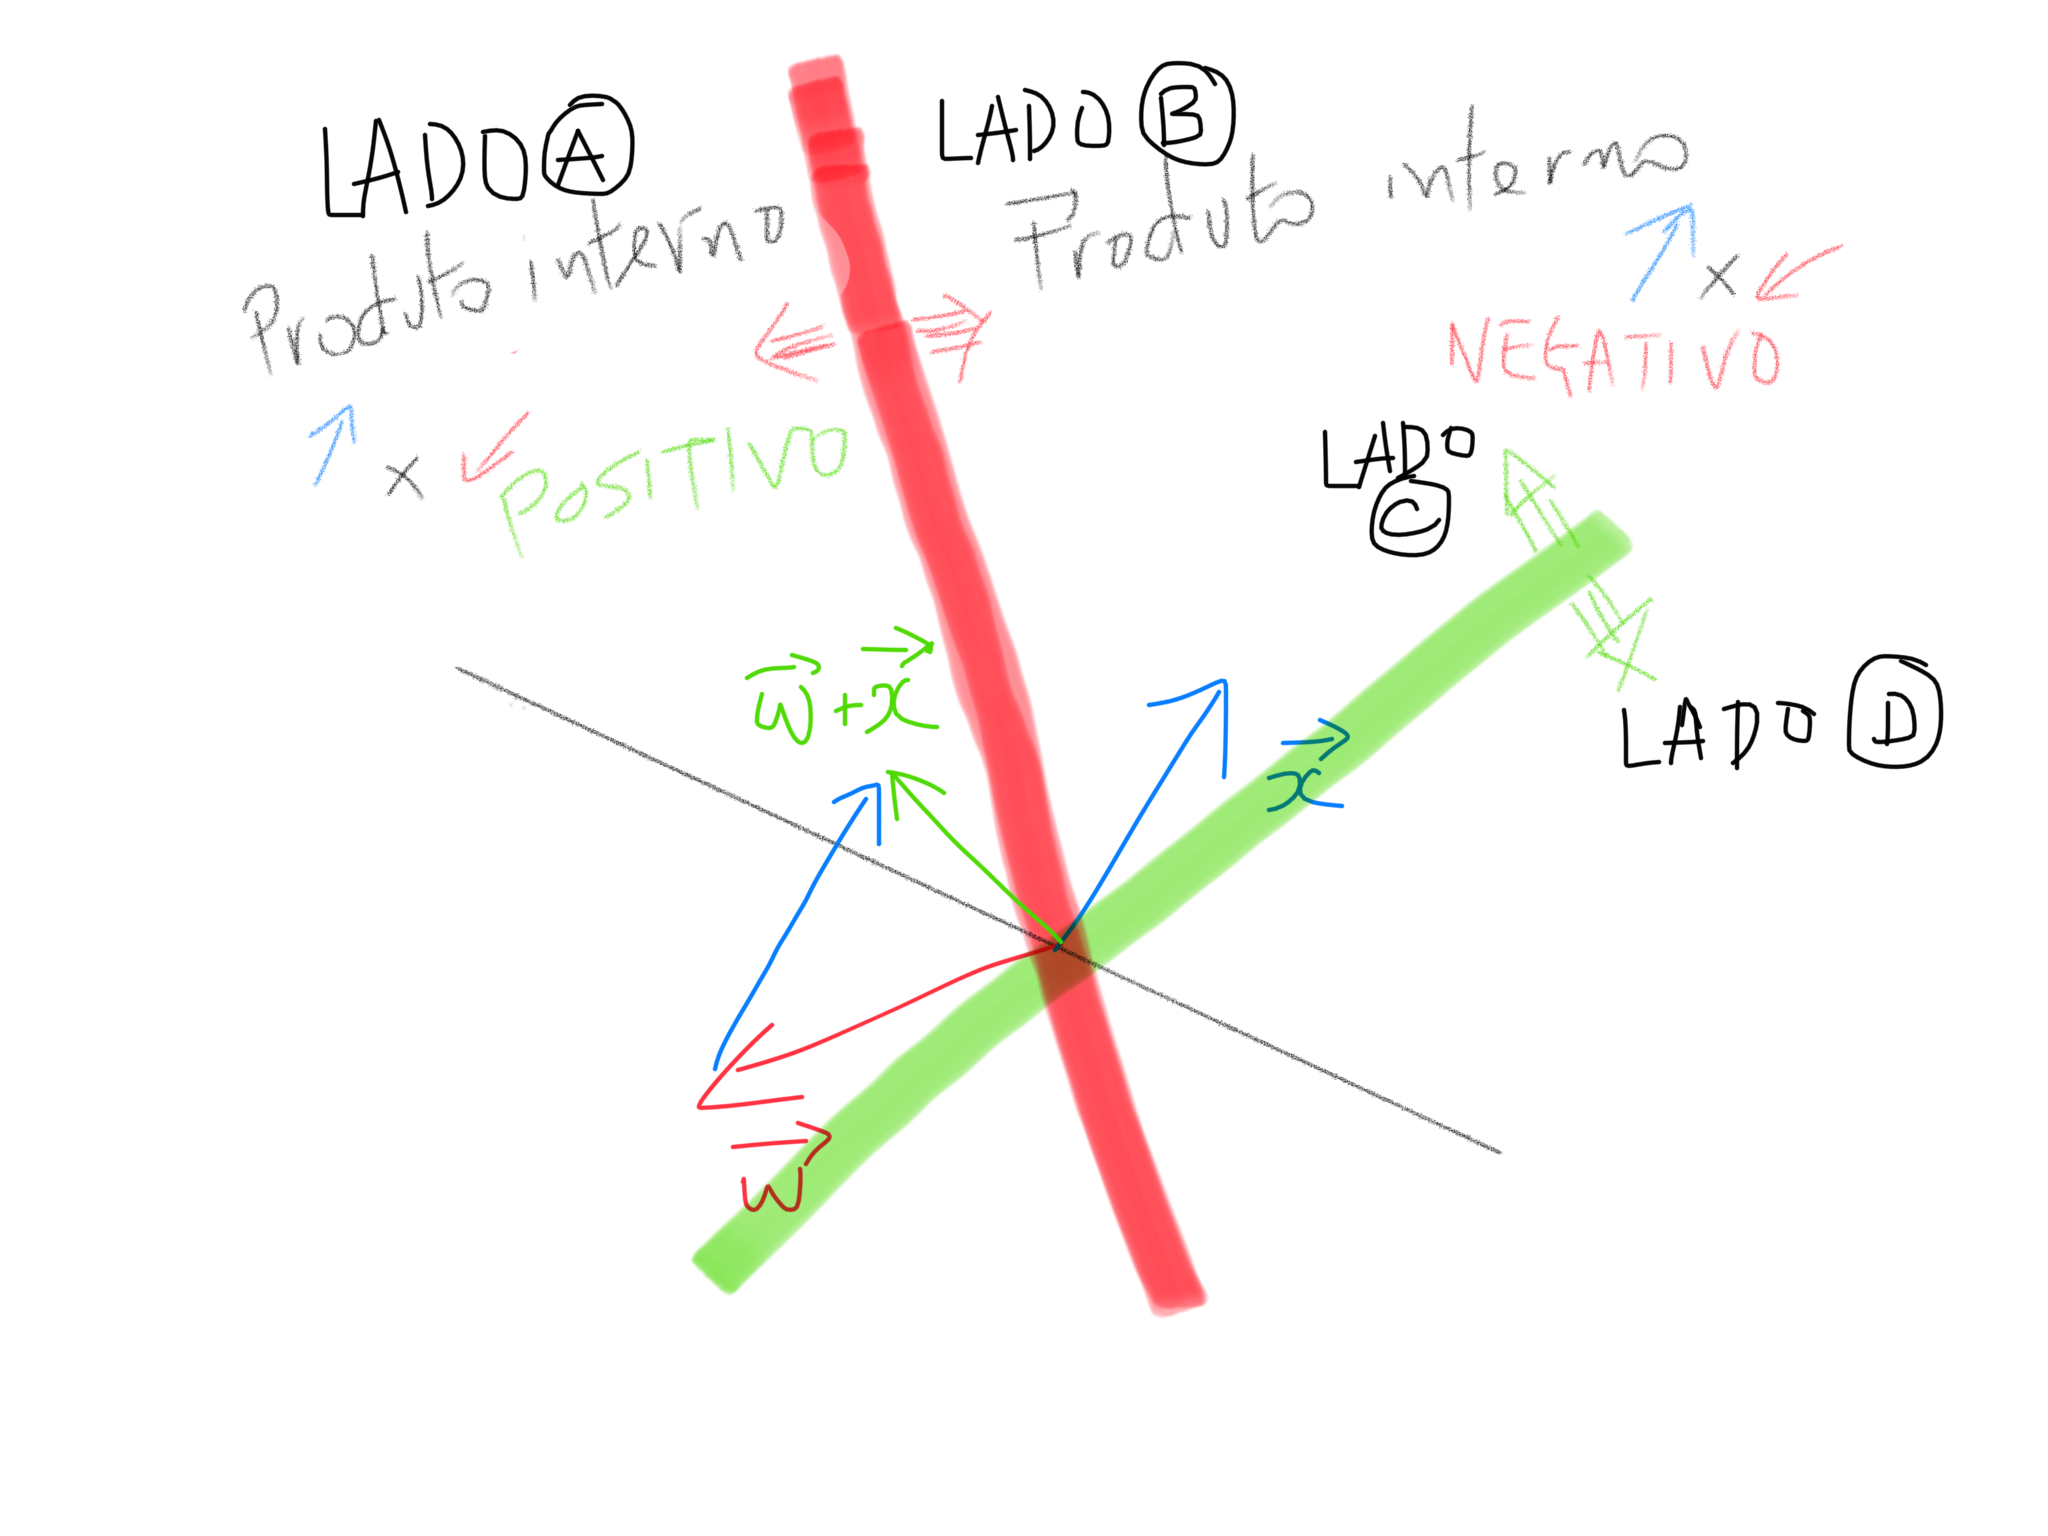 LADO A
Produto interno
x POSITIVO
LADO B
Produto interno
x
NEGATIVO
LADO
C
LADO D
w + x
x
w